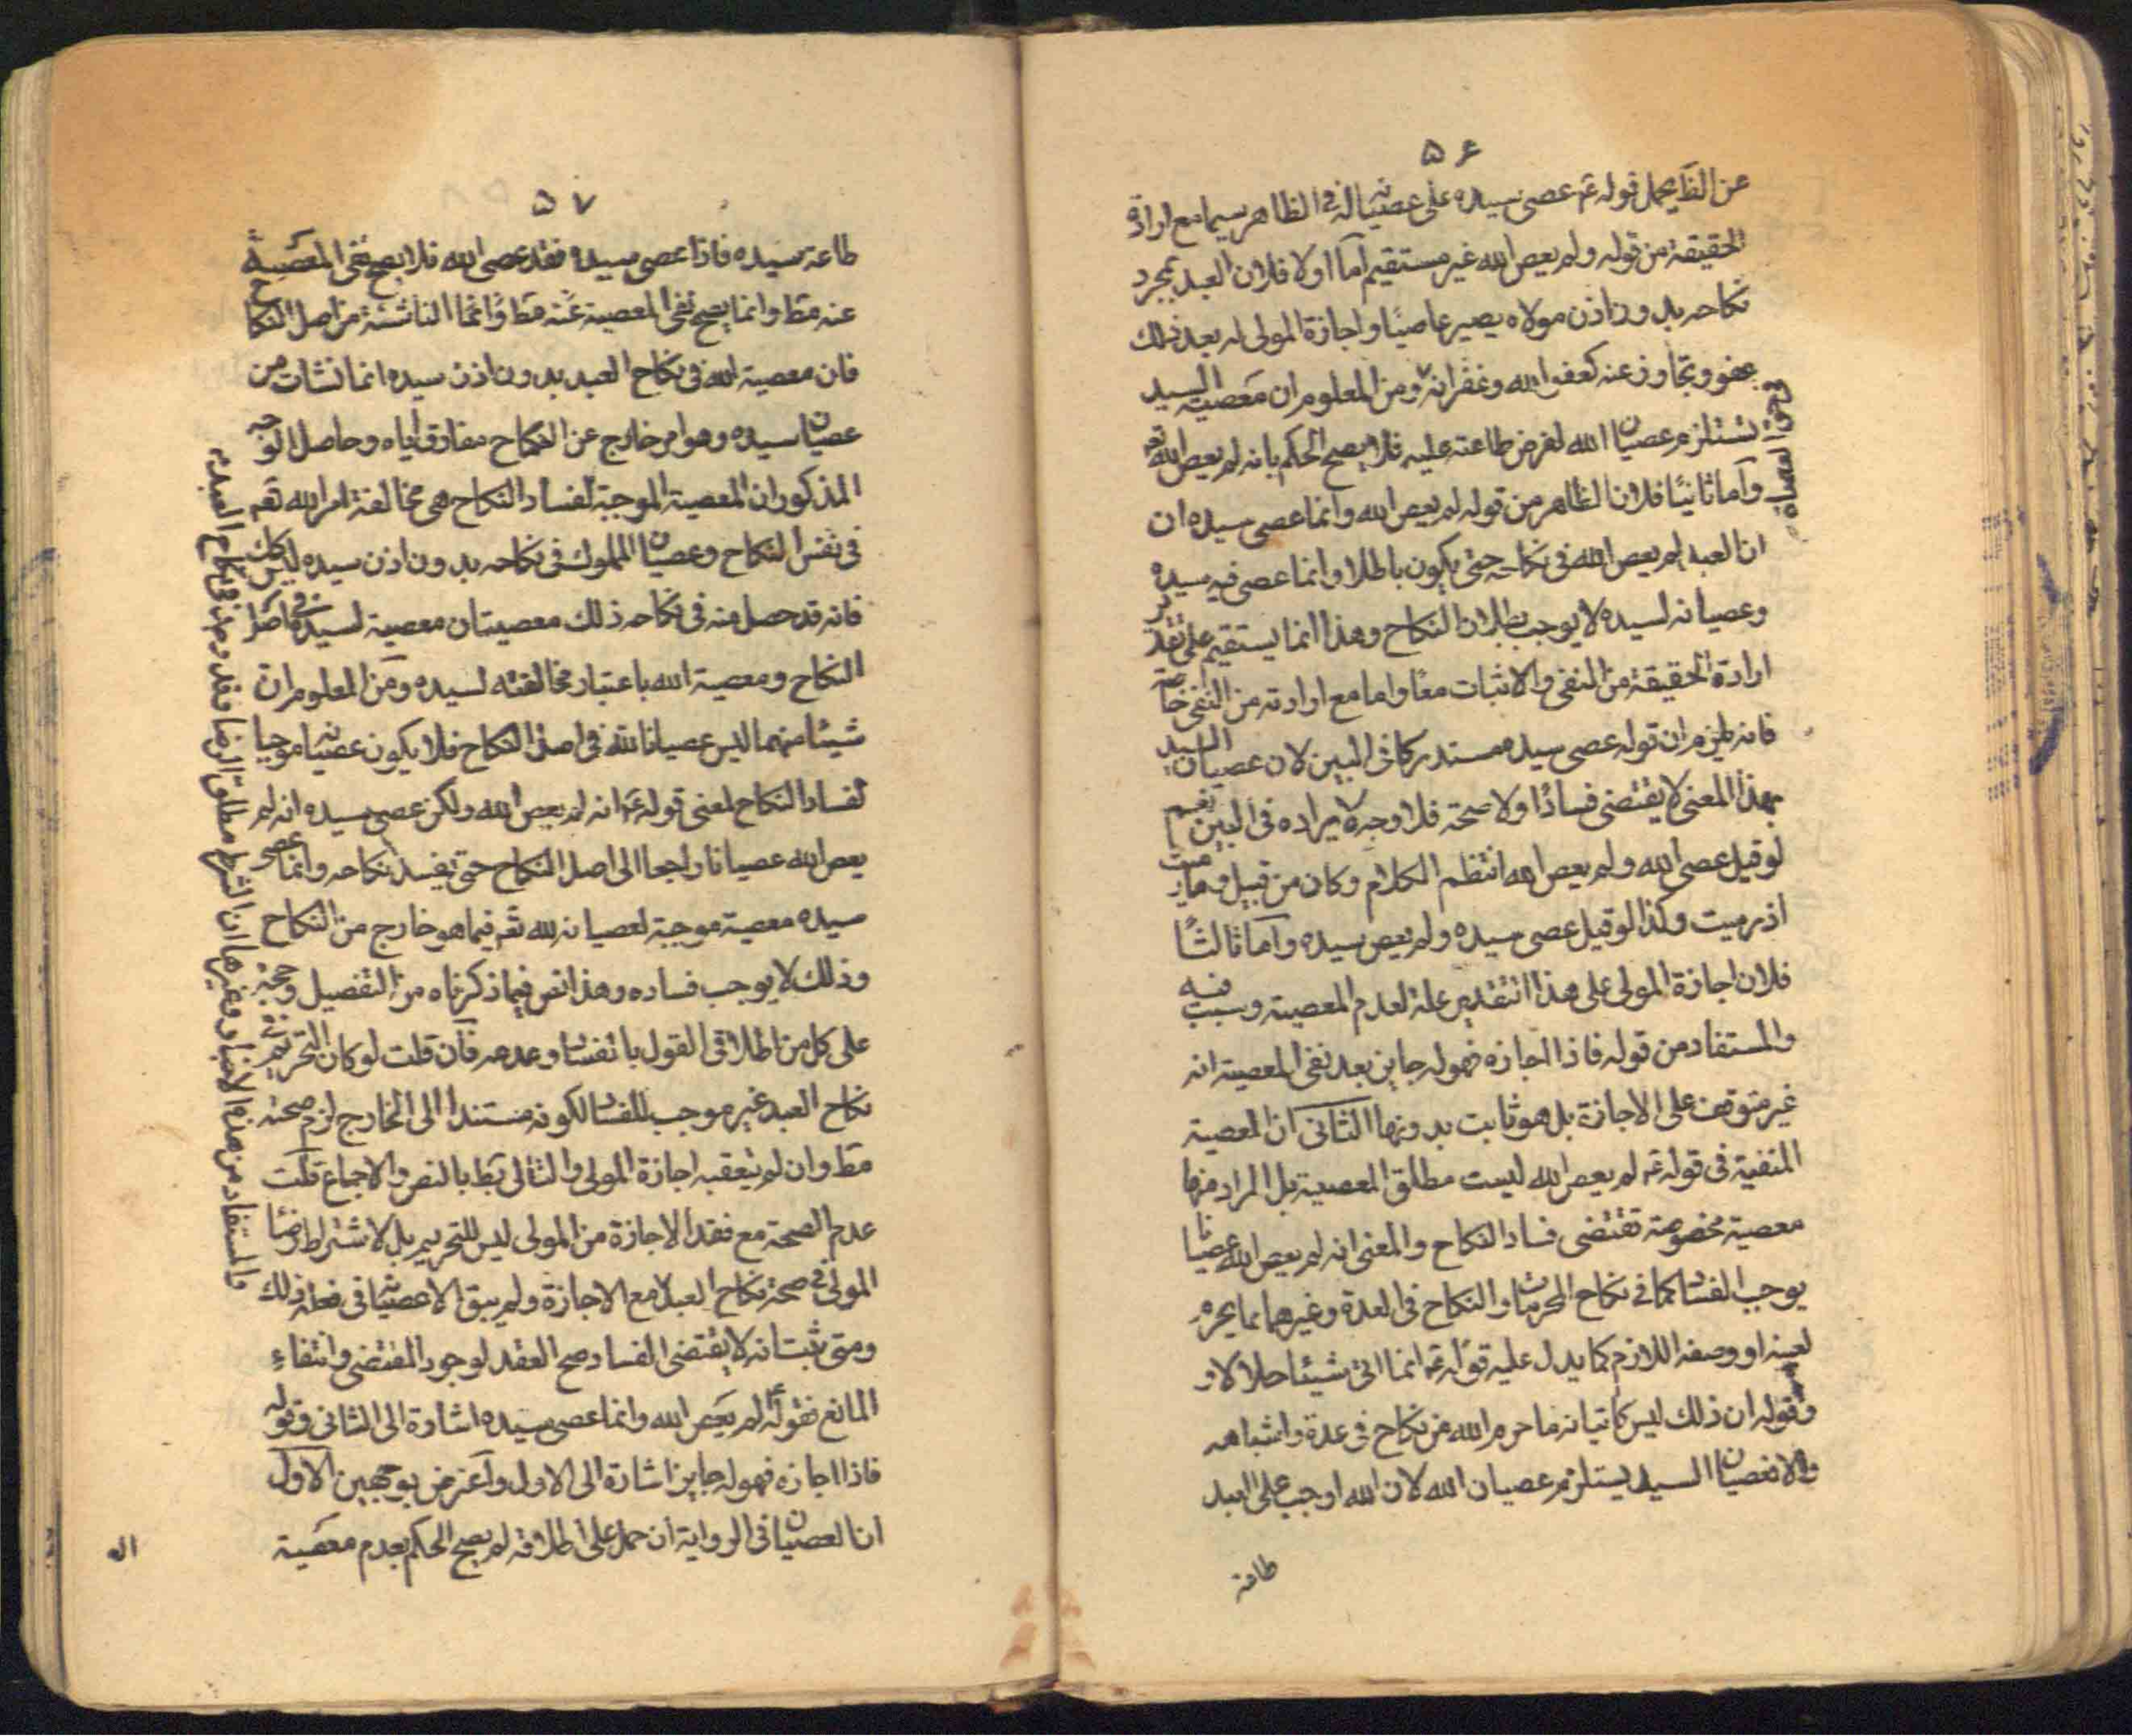 ۵۶
عن الظ يحمل قوله ع عصى سيده على عصيانه في الظاهر سيما مع ارادة
الحقيقة من قوله ولم يعص الله غير مستقيم اما اولا فلان العبد بمجرد
نكاحه بدون اذن مولاه يصير عاصيا واجازة المولى له بعد ذلك
عفو وتجاوز عنه كعفو الله وغفرانه ومن المعلوم ان معصية السيد
تستلزم عصيان الله لفرض طاعته عليه فلا يصح الحكم بانه لم يعص الله تعم
وآما ثانيًا فلان الظاهر من قوله لم يعص الله وانما عصى سيده ان
ان العبد لم يعص الله في نكاحه حتى يكون باطلا وانما عصى فيه سيده
وعصيانه لسيده لا يوجب بطلان النكاح وهذا انما يستقيم على تقدير
ارادة الحقيقة من النفي والاثبات معًا واما مع ارادته من النفي خاصة
فانه يلزم ان قوله عصى سيده مستدركا في البين لان عصيان السيد
بهذا المعنى لا يقتضى فسادًا ولا صحة فلا وجه لايراده في البين نعم
لو قيل عصى الله ولم يعص الله انتظم الكلام وكان من قبيل وما رميت
اذ رميت وكذا لو قيل عصى سيده ولم يعص سيده وآما ثالثًا
فلان اجازة المولى على هذا التقدير علة لعدم المعصية وسبب فيه
والمستفاد من قوله فاذا اجازه فهو له جايز بعد نفى المعصية انه
غير متوقف على الاجازة بل هو ثابت بدونها الثانى ان المعصية
المنفية في قوله ع لم يعص الله ليست مطلق المعصية بل المراد منها
معصية مخصوصة تقتضى فساد النكاح والمعنى انه لم يعص الله عصيانا
يوجب الفساد كما في نكاح المحرمات والنكاح في العدة وغيرهما مما يحرم
لعينه او وصفه اللازم كما يدل عليه قوله ع انما اتى شيئا حلالا و
وقوله ان ذلك ليس كاتيانه ما حرم الله من نكاح في عدة واشباهه
والا فعصيان السيد يستلزم عصيان الله لان الله اوجب على العبد
طاعة
۵۷
طاعة سيده فاذا عصى سيده فقد عصى الله فلا يصح نفى المعصية
عنه مط وانما يصح نفى المعصية عنه مط وانما الناشئة من اصل النكاح
فان معصية الله في نكاح العبد بدون اذن سيده انما نشات من
عصيان سيده وهو امر خارج عن النكاح مفارق اياه وحاصل الوجه
المذكور ان المعصية الموجبة لفساد النكاح هى مخالفة امر الله تعم
في نفس النكاح وعصيان المملوك في نكاحه بدون اذن سيده ليس كك
فانه قد حصل منه في نكاحه ذلك معصيتان معصية لسيده في اصل
النكاح ومعصية الله باعتبار مخالفته لسيده ومن المعلوم ان
شيئا منهما ليس عصيانا لله في اصل النكاح فلا يكون عصيانه موجبا
لفساد النكاح لمعنى قوله ع انه لم يعص الله ولكن عصى سيده انه لم
يعص الله عصيانا راجعا الى اصل النكاح حتى يفسد نكاحه وانما عصى
سيده معصية موجبة لعصيانه لله تعم فيما هو خارج من النكاح
وذلك لا يوجب فساده وهذا نص فيما ذكرناه من التفصيل وحجة
على كل من اطلاقى القول بالفساد وعدمه فآن قلت لو كان التحريم في
نكاح العبد غير موجب للفساد لكونه مستندا الى الخارج لزم صحته
مط وان لم يتعقبه اجازة المولى والتالى بط بالنص والاجماع قلت
عدم الصحة مع فقد الاجازة من المولى ليس للتحريم بل لاشتراط رضا
المولى في صحة نكاح العبد مع الاجازة ولم يبق الا عصيانه في فعله ذلك
ومتى ثبت انه لا يقتضى الفساد صح العقد لوجود المقتضى وانتفاء
المانع فقوله ع لم يعص الله وانما عصى سيده اشارة الى الثانى وقوله
فاذا اجازه فهو له جايز اشارة الى الاول وآعترض بوجهين الاول
ان العصيان في الرواية ان حمل على اطلاقه لم يصح الحكم بعدم معصية
والمستفاد من هذه الاخبار وغيرها ان الشرط مطلق الرضا
الله